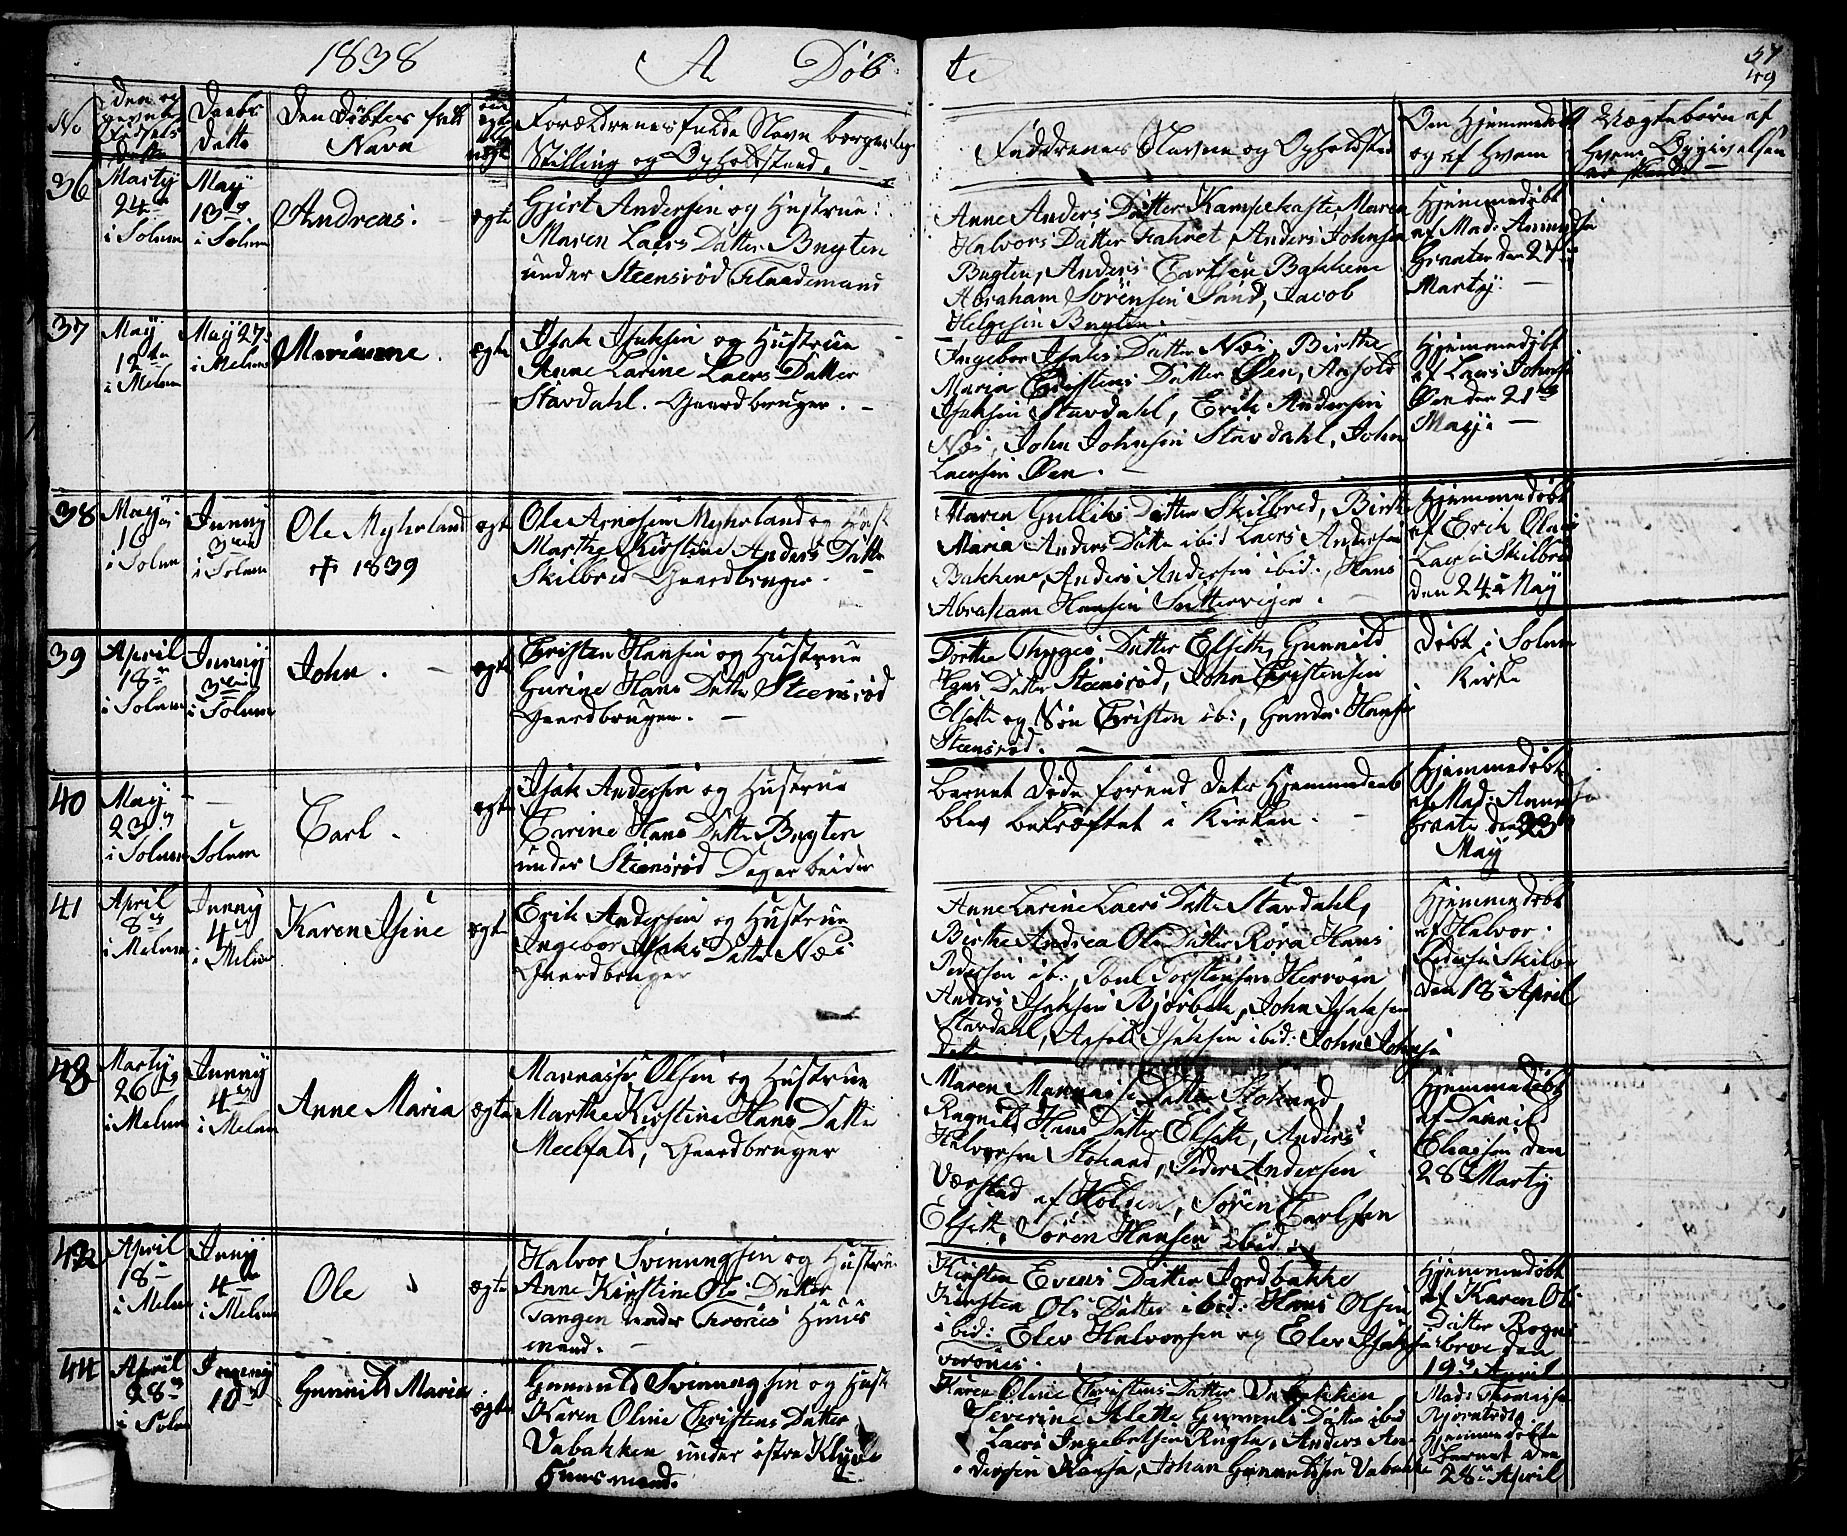 1838
A Døbte
57
49
No
den og
Fødsels
Datto
Daabs
Datto
Den Døbtes fulde
Navn
om
ægte
eller
uægte
Forældrenes fulde Navn borgerlig
Stilling og Opholdsstæd.
Faddrenes Navne og Opholdsted
Om Hjemmedøbt
og af Hvem
Uægtebørn af
Hvem
36
Marty
24de
i Solum
May
13de
i Solum
Andreas.
ægte
Gjert Andersen og Hustrue
Maren Laers Datter Bugten
under Steensrød
Anne Anders Datter Kampekaste, Maren
Halvors Datter Fahret, Anders Johnsen
Bugten, Anders Carlsen Bakken
Abraham Sørensen Sand, Jacob
Helgesen Bugten.
Hjemmedøbt
af Mad:
den 27de
Marty.
37
May
12de
i Melum
May 27
i Melum
Marianne.
ægte
Isak Isaksen og Hustrue
Anne Larine Laers Datter
Stavdahl. Gaardbruger.
Ingebor Isaks Datter Næs, Birthe
Maria Christens Datter Øen, Aasold
Isaksen Stavdahl, Erik Andersen
Næs, John Johnsen Stavdahl, John
Laersen Øen.
Hjemmedøbt
af Laers Johnsen
Øen den 21de
May.
38
May
16
i Solum
Juny
3die
i Solum
Ole Myhrland
† 1839
ægte
Ole Arnesen Myhrland og Hust
Marthe Kirstine Anders Datter
Skilbred Gaardbruger.
Maren Gulliks Datter Skilbred, Birthe
Maria Anders Datte ibid Laers Andersen
Bakken, Anders Andersen ibid:, Hans
Abraham Hansen
Hjemmedøbt
af Erik Olsen
Skilbred
den 24de May
39
April
18de
i Solum
Juny
3die
i Solum
John.
ægte
Christen Hansen og Hustrue
Gurine Hans Datte Steensrød
Gaardbruger.
Dorthe Thyges Datter Elseth, Gunnild
Hans Datter Steensrød, John Christensen
Elseth og Søn Christen ib:, Gunder Hansen
Steensrød.
Døbt i Solum
Kirke
40
May
23de
i Solum
Solum
Carl.
ægte
Isak Andersen og Hustrue
Carine Hans Datter Bugten
under Steensrød Dagarbeider
barnet døde forend dets Hjemmedaab
blev bekræftet i Kirken.
Hjemmedøbt
af Mad:
den 23
May
41
April
8de
i Melum
Juny
4de
i Melum
Karen Isine
ægte
Erik Andersen og Hustrue
Ingebor Isaks Datte Næs
Gaardbruger
Anne Larine Laers Datte Stavdahl,
Birthe Andrea Ols Datter Røra Hans
Pedersen ib:, Poul Torstensen
Anders Isaksen Bjørbek, John Isaksen
Stavdahl, Aasold Isaksen ibid: John Johnsen
Hjemmedøbt
af Halvor
Pedersen Skilbre
den 18de April
43
Marty
26de
i Melum
Juny
4de
i Melum
Anne Maria
ægte
Mannasses Olsen og Hustrue
Marthe Kirstine Hans Datte
Meelfald, Gaardbruger
Maren Mannasses Datter Stokand,
Ragnild Hans Datter Elseth, Anders
Halvorsen Stokand, Peder Andersen
Værstad af Holden, Søren Carlsen
Elseth, Søren Hansen ibid:
Hjemmedøbt
af Daniel
Eliasen den
28de Marty
42
April
18de
i Melum
Juny
4de
i Melum
Ole
ægte
Halvor Svenungsen og Hustrue
Anne Kirstine Ols Datter
Tangen under Huus
mand.
Kirsten Evens Datter Jordbakke
Kirsten Ols Datter ibid: Hans Olsen
ibid: Elev Halvorsen og Elev Isaksen
Hjemmedøbt
af Karen Ols
Datter
den
19de April
44
April
28de
i Solum
Juny
10de
Gunnild Maria
ægte
Gunnuld Svenungsen og Hust
Karen Oline Christens Datter
Vabakken under østre Klyve
Huusmand.
Karen Oline Christens Datter Vabakken
Severine Alette Gunnulds Datter ibid
Laers Ingebretsen Rugla, Anders An-
dersen, Johan Gunnuldsen Vabakke
Mad: Thomasen
Hjemmedøbte
Barnet den
28de April